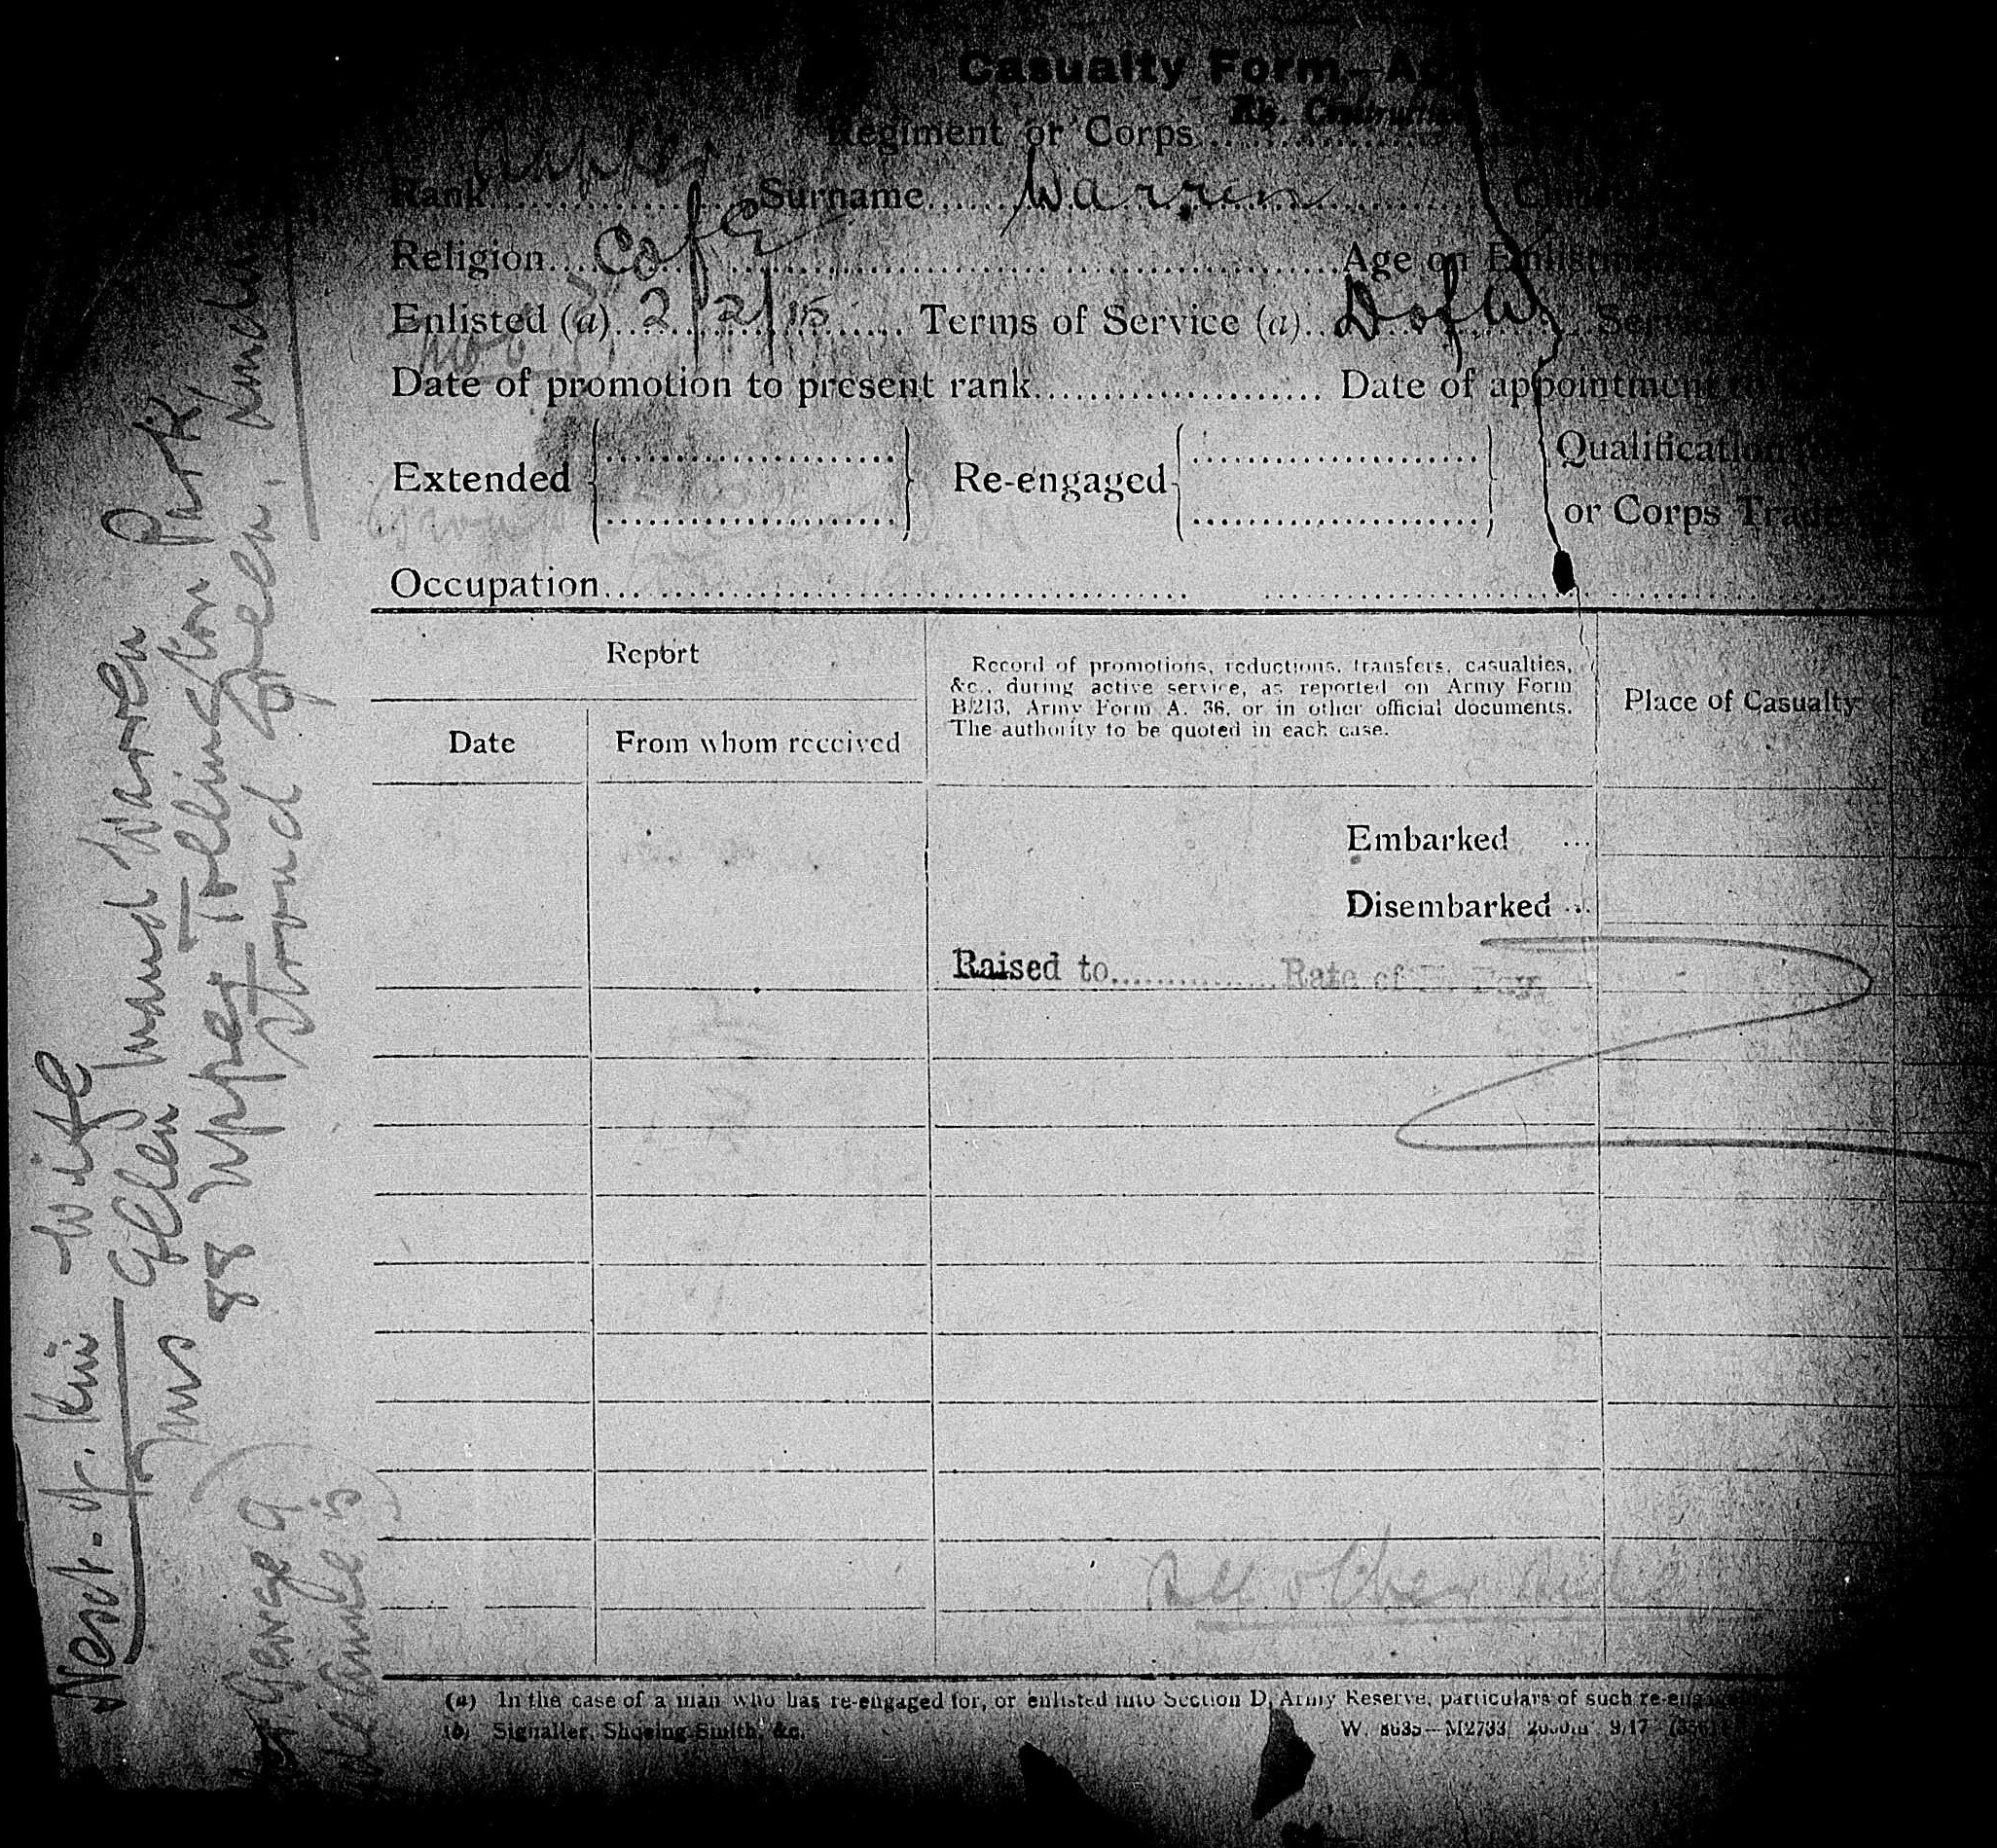 Casualty Form—A
Regiment or Corps
Rank Sapper Surname Warren
Religion C of E Age on Enlistm
Enlisted (a) 2/2/15 Terms of Service (a) D of W Serv
Date of promotion to present rank Date of appointment
Extended Re-engaged Qualification
or Corps Trade
Occupation
Report
Date
From whom received
Record of promotions, reductions, transfers, casualties,
&c., during active service, as reported on Army Form
B.213, Army Form A. 36, or in other official documents.
The authority to be quoted in each case.
Place of Casualty
Embarked ...
Disembarked ...
Raised to Rate of Pay.
All other
(a) In the case of a man who has re-engaged for, or enlisted into Section D, Army Reserve, particulars of such re-eng
(b) Signaller, Shoeing Smith, &c.
W. 8635—M2733 9/17
Next-of-Kin Wife
Ellen Maud Warren
Mrs
88 Upper Tollington Park
Stroud Green,
George 9
5